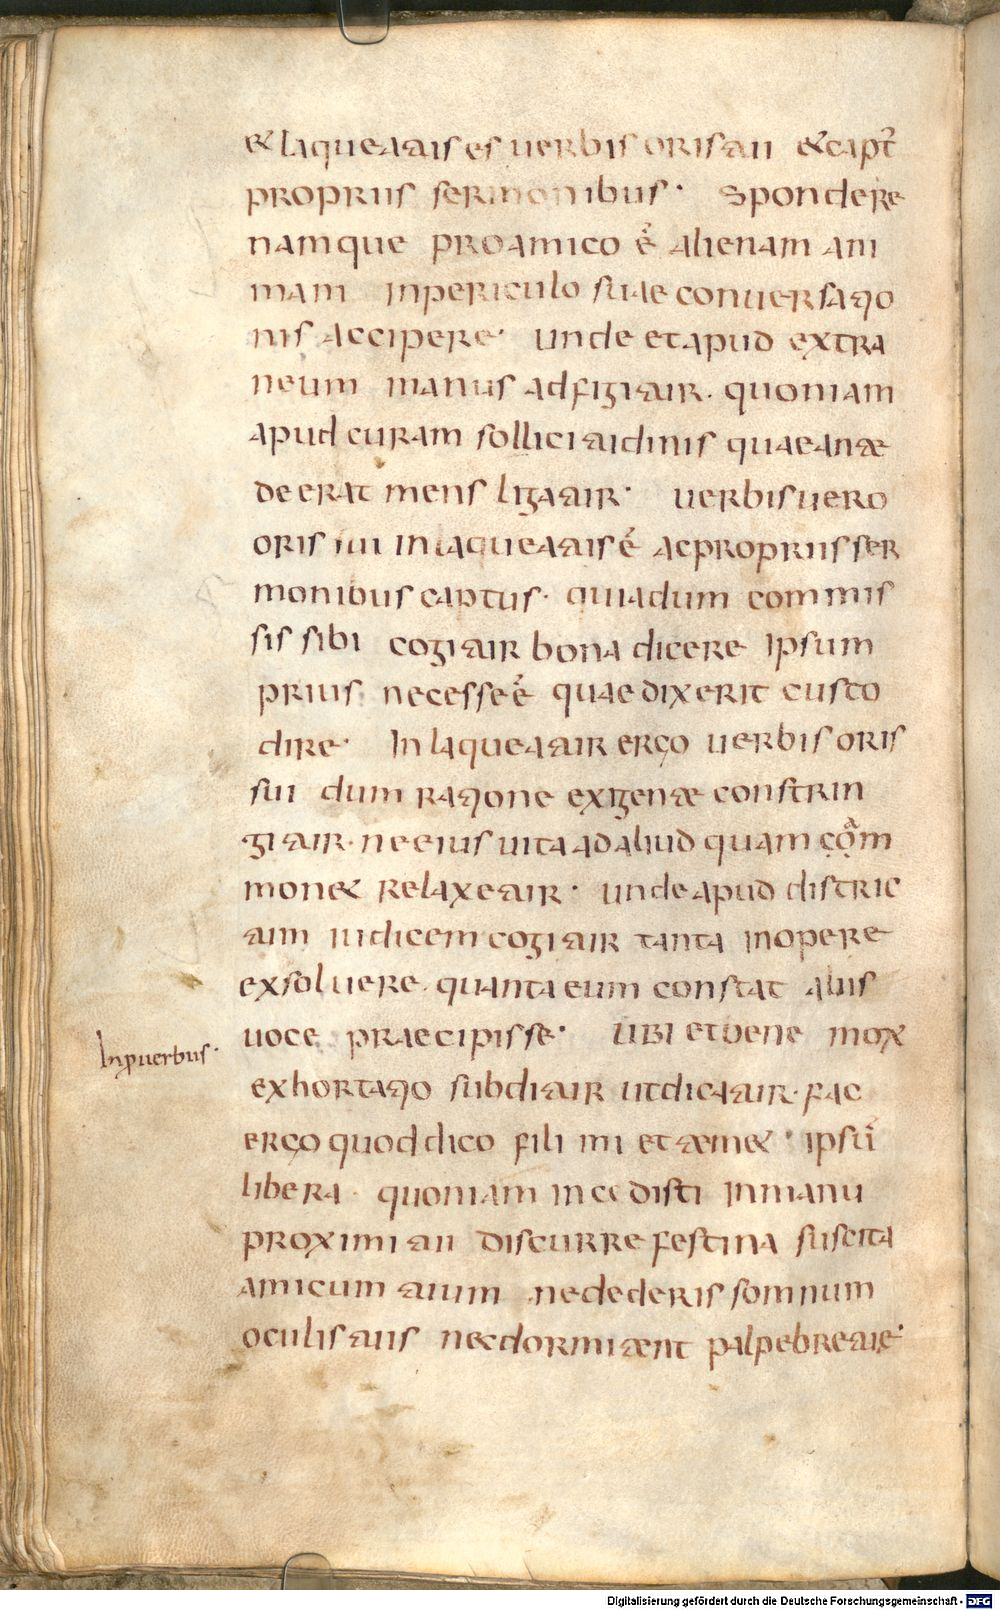 & laqueatus es uerbis oris tui & capt̃
propriis sermonibus· Spondere
namque pro amico ē alienam ani
mam in periculo suae conuersatio
nis accipere· unde et apud extra
neum manus adfigitur· quoniam
apud curam sollicitudinis quae ante
deerat mens ligatur· uerbis uero
oris tui inlaqueatus ē ac propriis ser
monibus captus· quia dum commis
sis sibi cogitur bona dicere ipsum
prius necesse ē quae dixerit custo
dire· Inlaqueatur ergo uerbis oris
sui dum ratione exigente constrin
gitur· ne eius uita ad aliud quam
mon& relaxetur· unde apud distric
tum iudicem cogitur tanta in opere
exsoluere· quanta eum constat aliis
uoce praecipisse· Ubi et bene mox
In puerbiis·
exhortatio subditur ut dicatur· fac
ergo quod dico fili mi et temet· ipsū
libera· quoniam incedisti in manu
proximi tui discurre festina suscita
amicum tuum ne dederis somnum
oculis tuis nec dormitent palpebre tue·
Digitalisierung gefördert durch die Deutsche Forschungsgemeinschaft - DFG